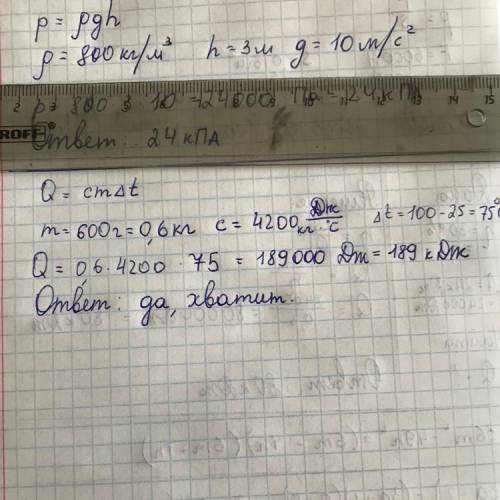 p = ρgh
ρ = 800 кг/м³ h = 3м g = 10 м/с²
p = 800 · 3 · 10 = 24000 Па = 24 кПа
Ответ: 24 кПА
2 3 4 5 6 7 8 9 10 11 12 13 14 15
ROFF
Q = cmΔt
m = 600г = 0,6 кг c = 4200 Дж/кг·°C Δt = 100 - 25 = 75°
Q = 0,6 · 4200 · 75 = 189000 Дж = 189 кДж
Ответ: да, хватит.